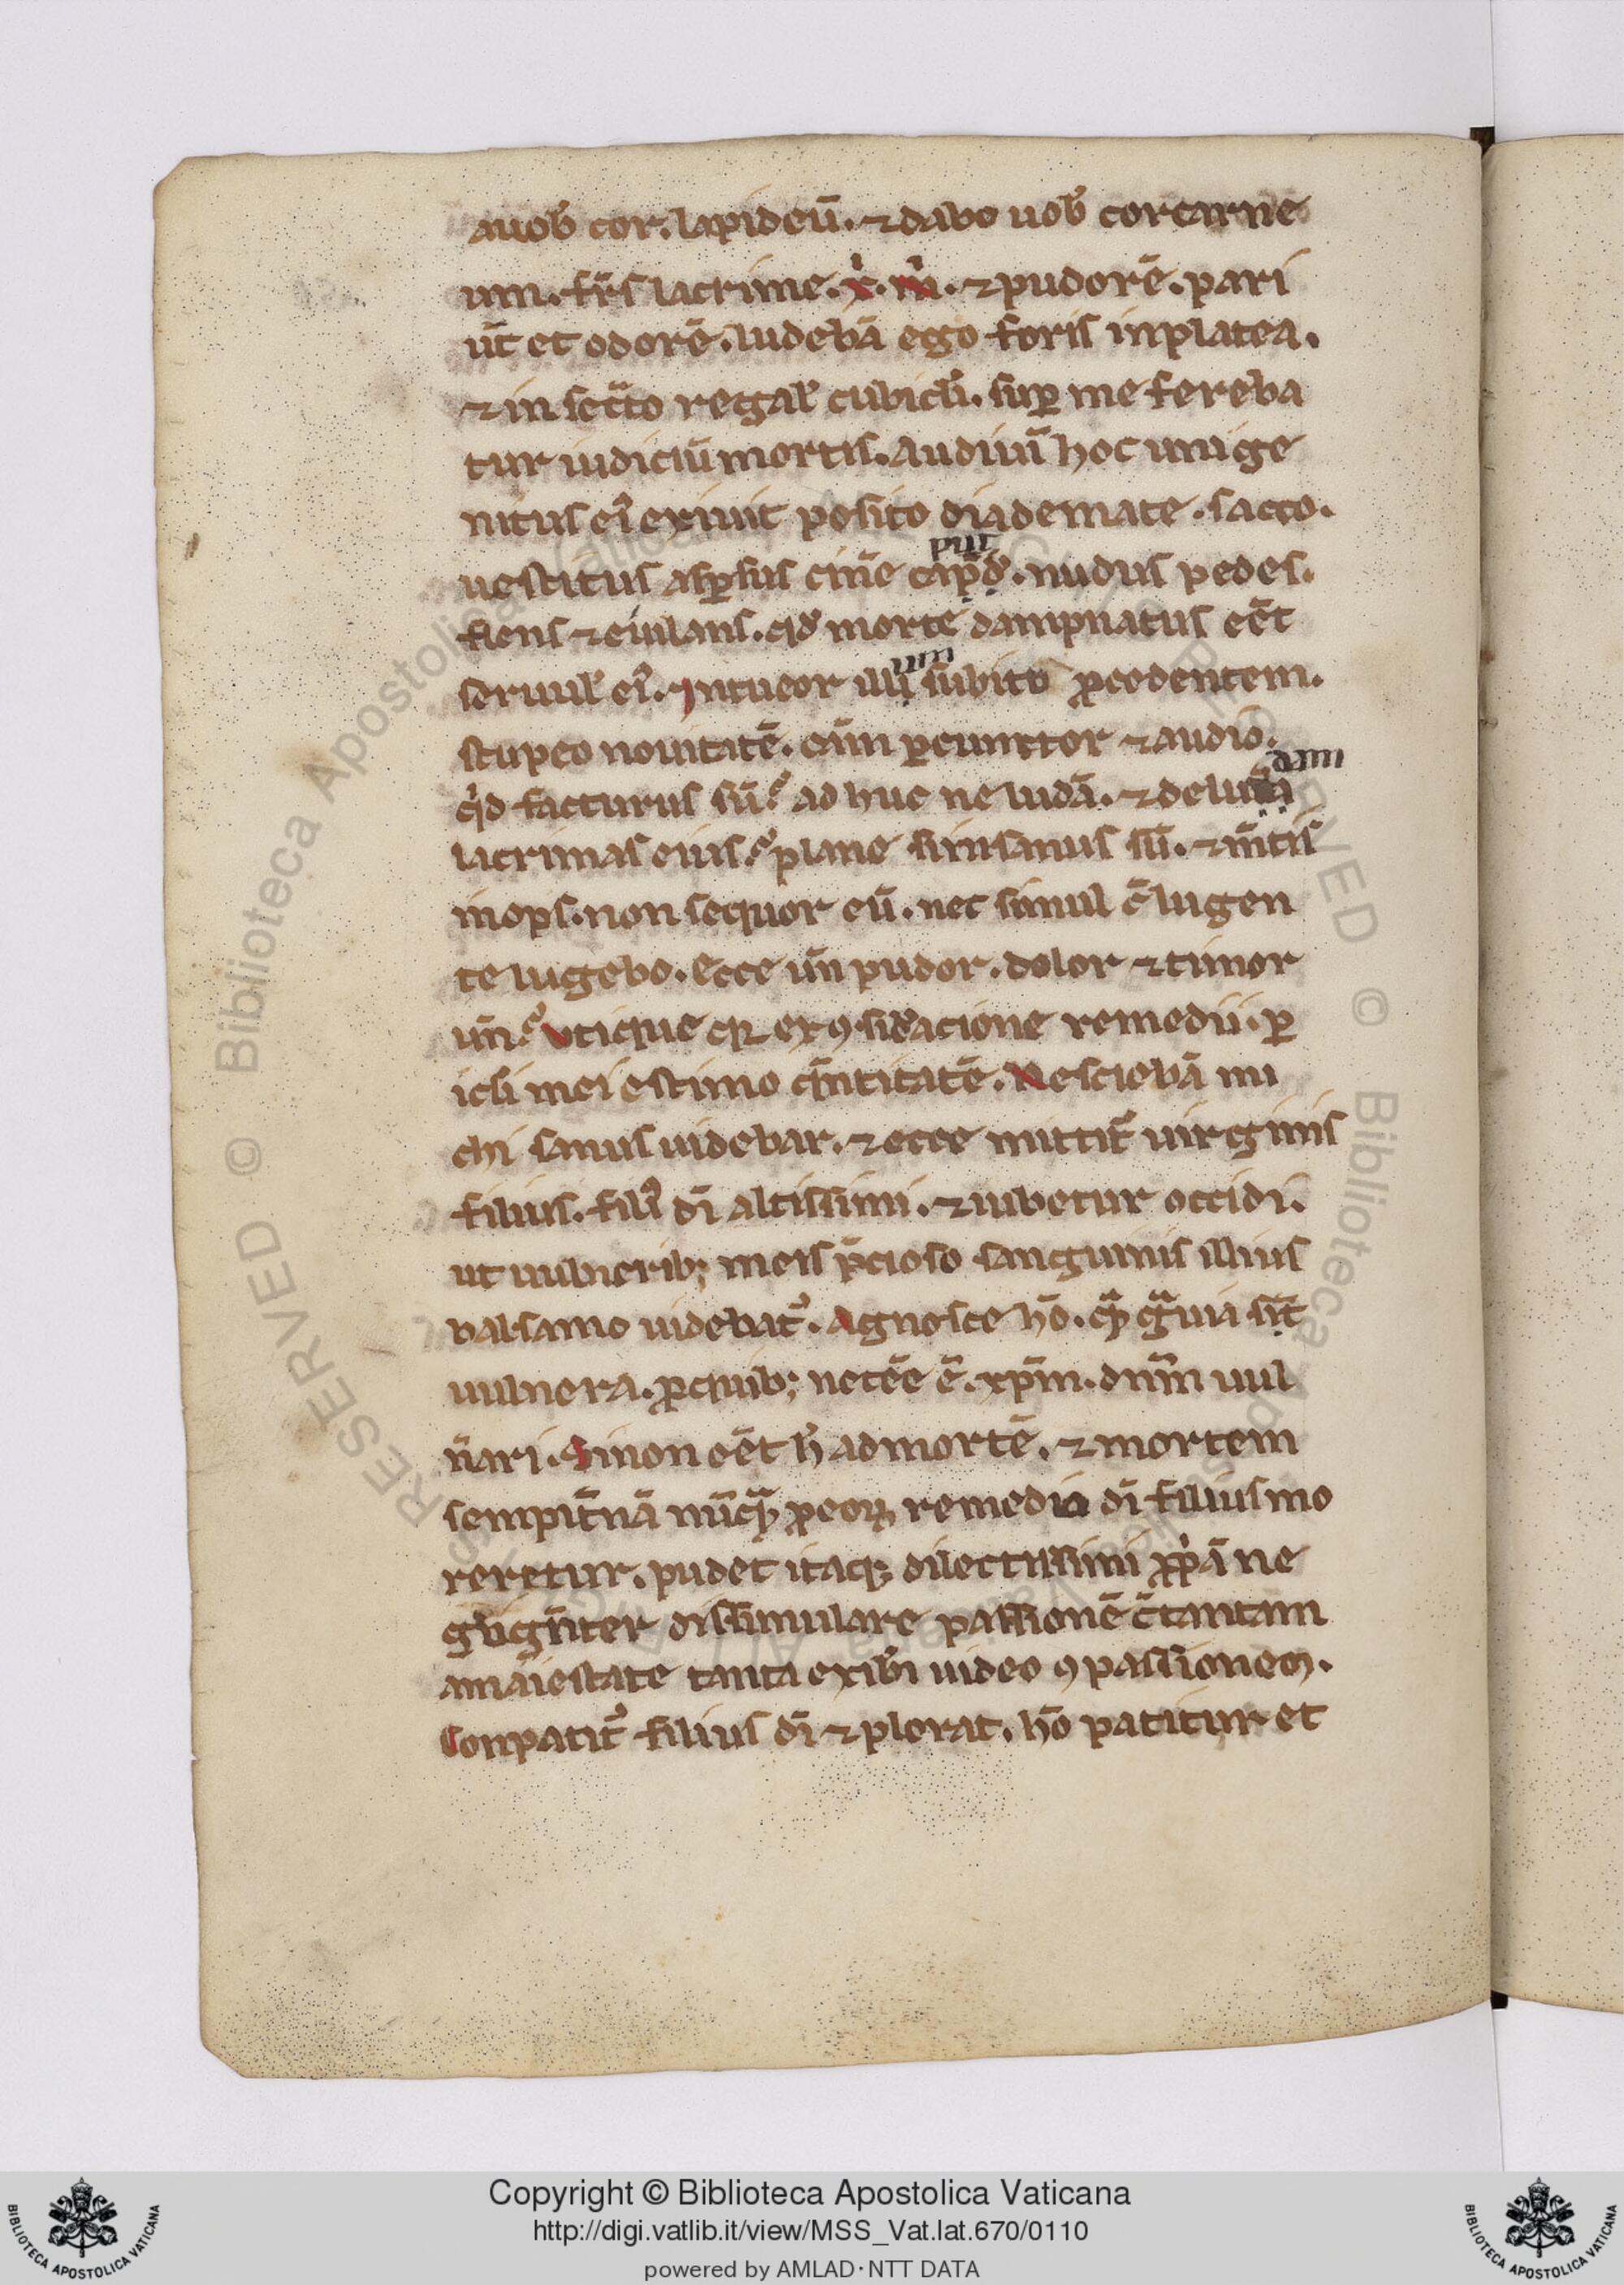 auob̄ cor. lapideū. ⁊ dabo uob̄ cor carne
um. fr̄s lacrime. x̄. m̄. ⁊ pudorē. pari
ūt et odorē. ludebā ego foris in platea.
⁊ in sec̄to regal̄ cubicl̄i. sup̄ me fereba
tur iudiciū mortis. Audiuit̄ hoc unige
nitus ei᷒ exiuit posito diademate. sacco.
put
uestitus asp̄sus cin̄e cap̄d̄. nudus pedes.
flens ⁊ eiulans. qd̄ morte dampnatus eēt
um
seruul᷒ ei᷒. Intueor illū subito p̄cedentem.
stupeo nouitatē. cām p̄cunctor ⁊ audio.
dam
qͥd facturus sū? ad huc ne ludā. ⁊ delu
lacrimas eius? plane si insanus sū. ⁊ m̄tis
inops. non sequor eū. nec simul c̄ lugen
te lugebo. Ecce un̄ pudor. dolor ⁊ timor
un̄? vticque qꝫ ex ꝯsid̄acione remedii. p̄
icl̄i mei estimo qᷓntitatē. Nesciebā mi
chi sanus uidebar. ⁊ ecce mittit᷑ uirginis
filius. fili᷒ dī altissimi. ⁊ iubetur occidi.
ut uulnerib; meis p̄cioso sanguinis illius
balsamo uidebat᷑. Agnosce hō. qᷓ gᷓuia sīt
uulnera. ꝓ quib; necēe ē. xp̄m. dn̄m uul
n̄ari. Si non eēt h̄ ad mortē. ⁊ mortem
sempit̄nā nūqᷓ ꝓ eoꝝ remedio dī filius mo
reretur. pudet itaqꝫ dilectissimi ꝓp̄ā ne
gligēnter dissimulare passionē c̄ tantam
a māiestate tanta exib̄i uideo ꝯpassionem.
Conpatit᷑ filius dī ⁊ plorat. hō patitur et
Copyright © Biblioteca Apostolica Vaticana
http://digi.vatlib.it/view/MSS_Vat.lat.670/0110
powered by AMLAD · NTT DATA
BIBLIOTECA APOSTOLICA VATICANA
BIBLIOTECA APOSTOLICA VATICANA